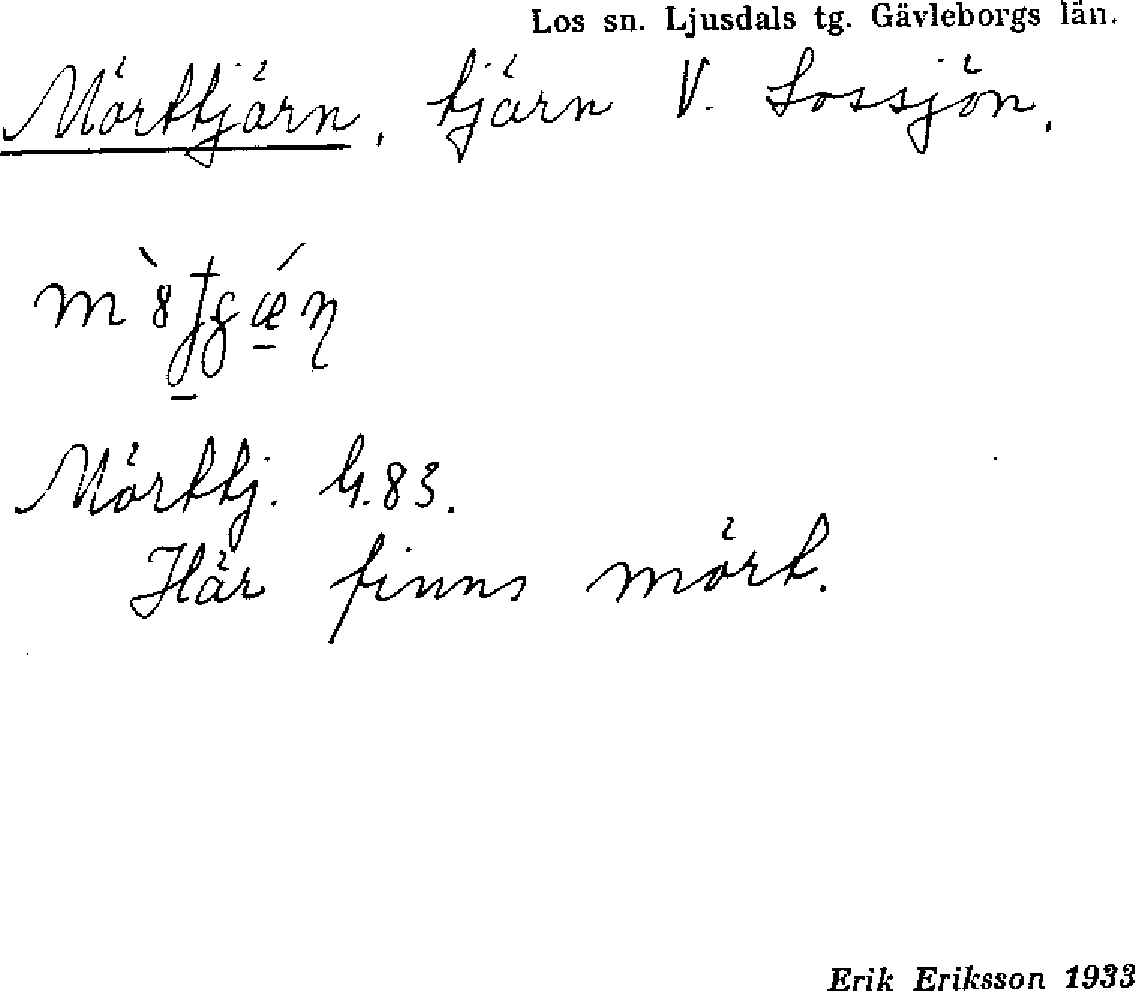 Los sn. Ljusdals tg. Gävleborgs län.
Mörttjärn, tjärn V. Lossjön,
Mörttj. G.83.
Här finns mört.
Erik Eriksson 1933